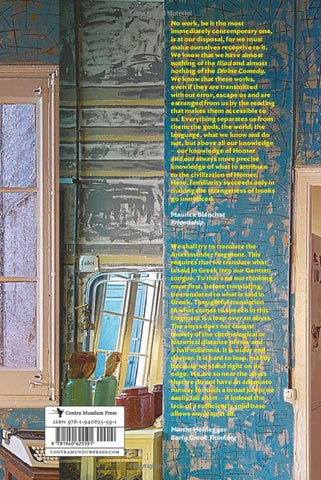 No work, be it the most
immediately contemporary one,
is at our disposal, for we must
make ourselves receptive to it.
We know that we have almost
nothing of the Iliad and almost
nothing of the Divine Comedy.
We know that these works,
even if they are transmitted
without error, escape us and are
estranged from us by the reading
that makes them accessible to
us. Everything separates us from
them: the gods, the world, the
language, what we know and do
not, but above all our knowledge
— our knowledge of Homer
and our always more precise
knowledge of what to attribute
to the civilization of Homer.
Here, familiarity succeeds only in
making the strangeness of books
go unnoticed.
Maurice Blanchot
Friendship
We shall try to translate the
Anaximander fragment. This
requires that we translate what
is said in Greek into our German
tongue. To that end our thinking
must first, before translating,
be translated to what is said in
Greek. Thoughtful translation
to what comes to speech in this
fragment is a leap over an abyss.
The abyss does not consist
merely of the chronological or
historical distance of two and
a-half millennia. It is wider and
deeper. It is hard to leap, mainly
because we stand right on its
edge. We are so near the abyss
that we do not have an adequate
runway for such a broad jump; we
easily fall short — if indeed the
lack of a sufficiently solid base
allows any leap at all.
Martin Heidegger
Early Greek Thinking
Contra Mundum Press
ISBN 978-1-940625-59-1
9 781940 625591
CONTRAMUNDUMPRESS.COM